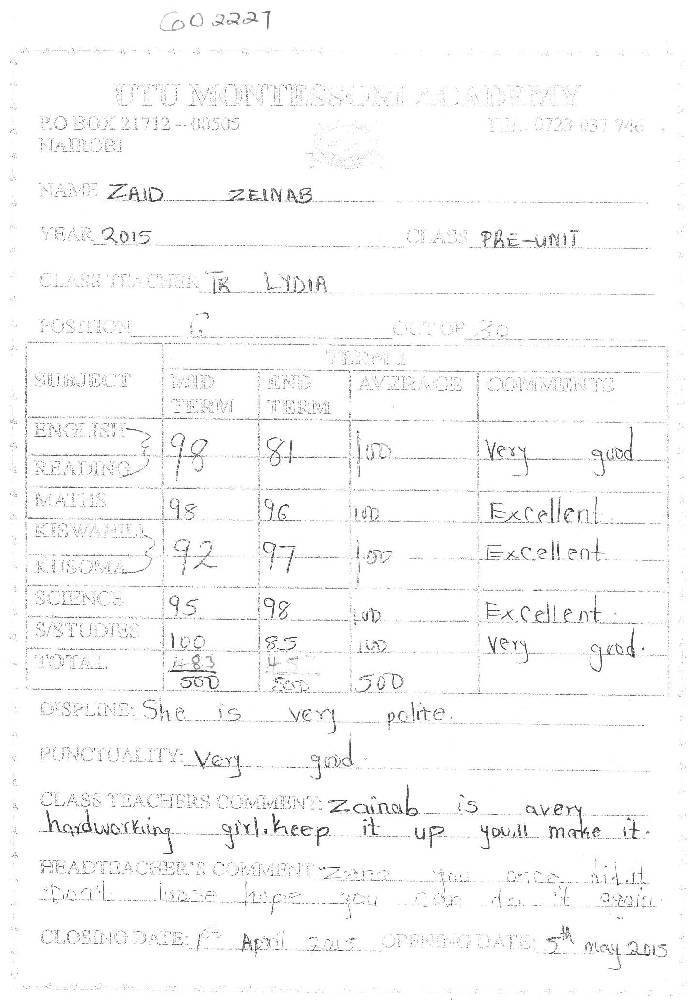 602227
UTU MONTESSORI ACADEMY
P.O BOX 21712 – 00505 TEL: 0723 037 746
NAIROBI
NAME ZAID ZEINAB
YEAR 2015 CLASS PRE-UNIT
CLASS TEACHER TR LYDIA
POSITION 6 OUT OF 30
TERM 1
SUBJECT MID TERM END TERM AVERAGE COMMENTS
ENGLISH READING 98 81 100 Very good
MATHS 98 96 100 Excellent
KISWAHILI KUSOMA 92 97 100 Excellent
SCIENCE 95 98 100 Excellent.
S/STUDIES 100 85 100 Very good.
TOTAL 483/500 500 500
DISPLINE: She is very polite.
PUNCTUALITY: Very good.
CLASS TEACHERS COMMENT: Zainab is avery
hardworking girl. Keep it up you,ll make it.
HEADTEACHER'S COMMENT you once did it
Don't loose hope you can do it again
CLOSING DATE: April 2015 OPENING DATE: 5th may 2015